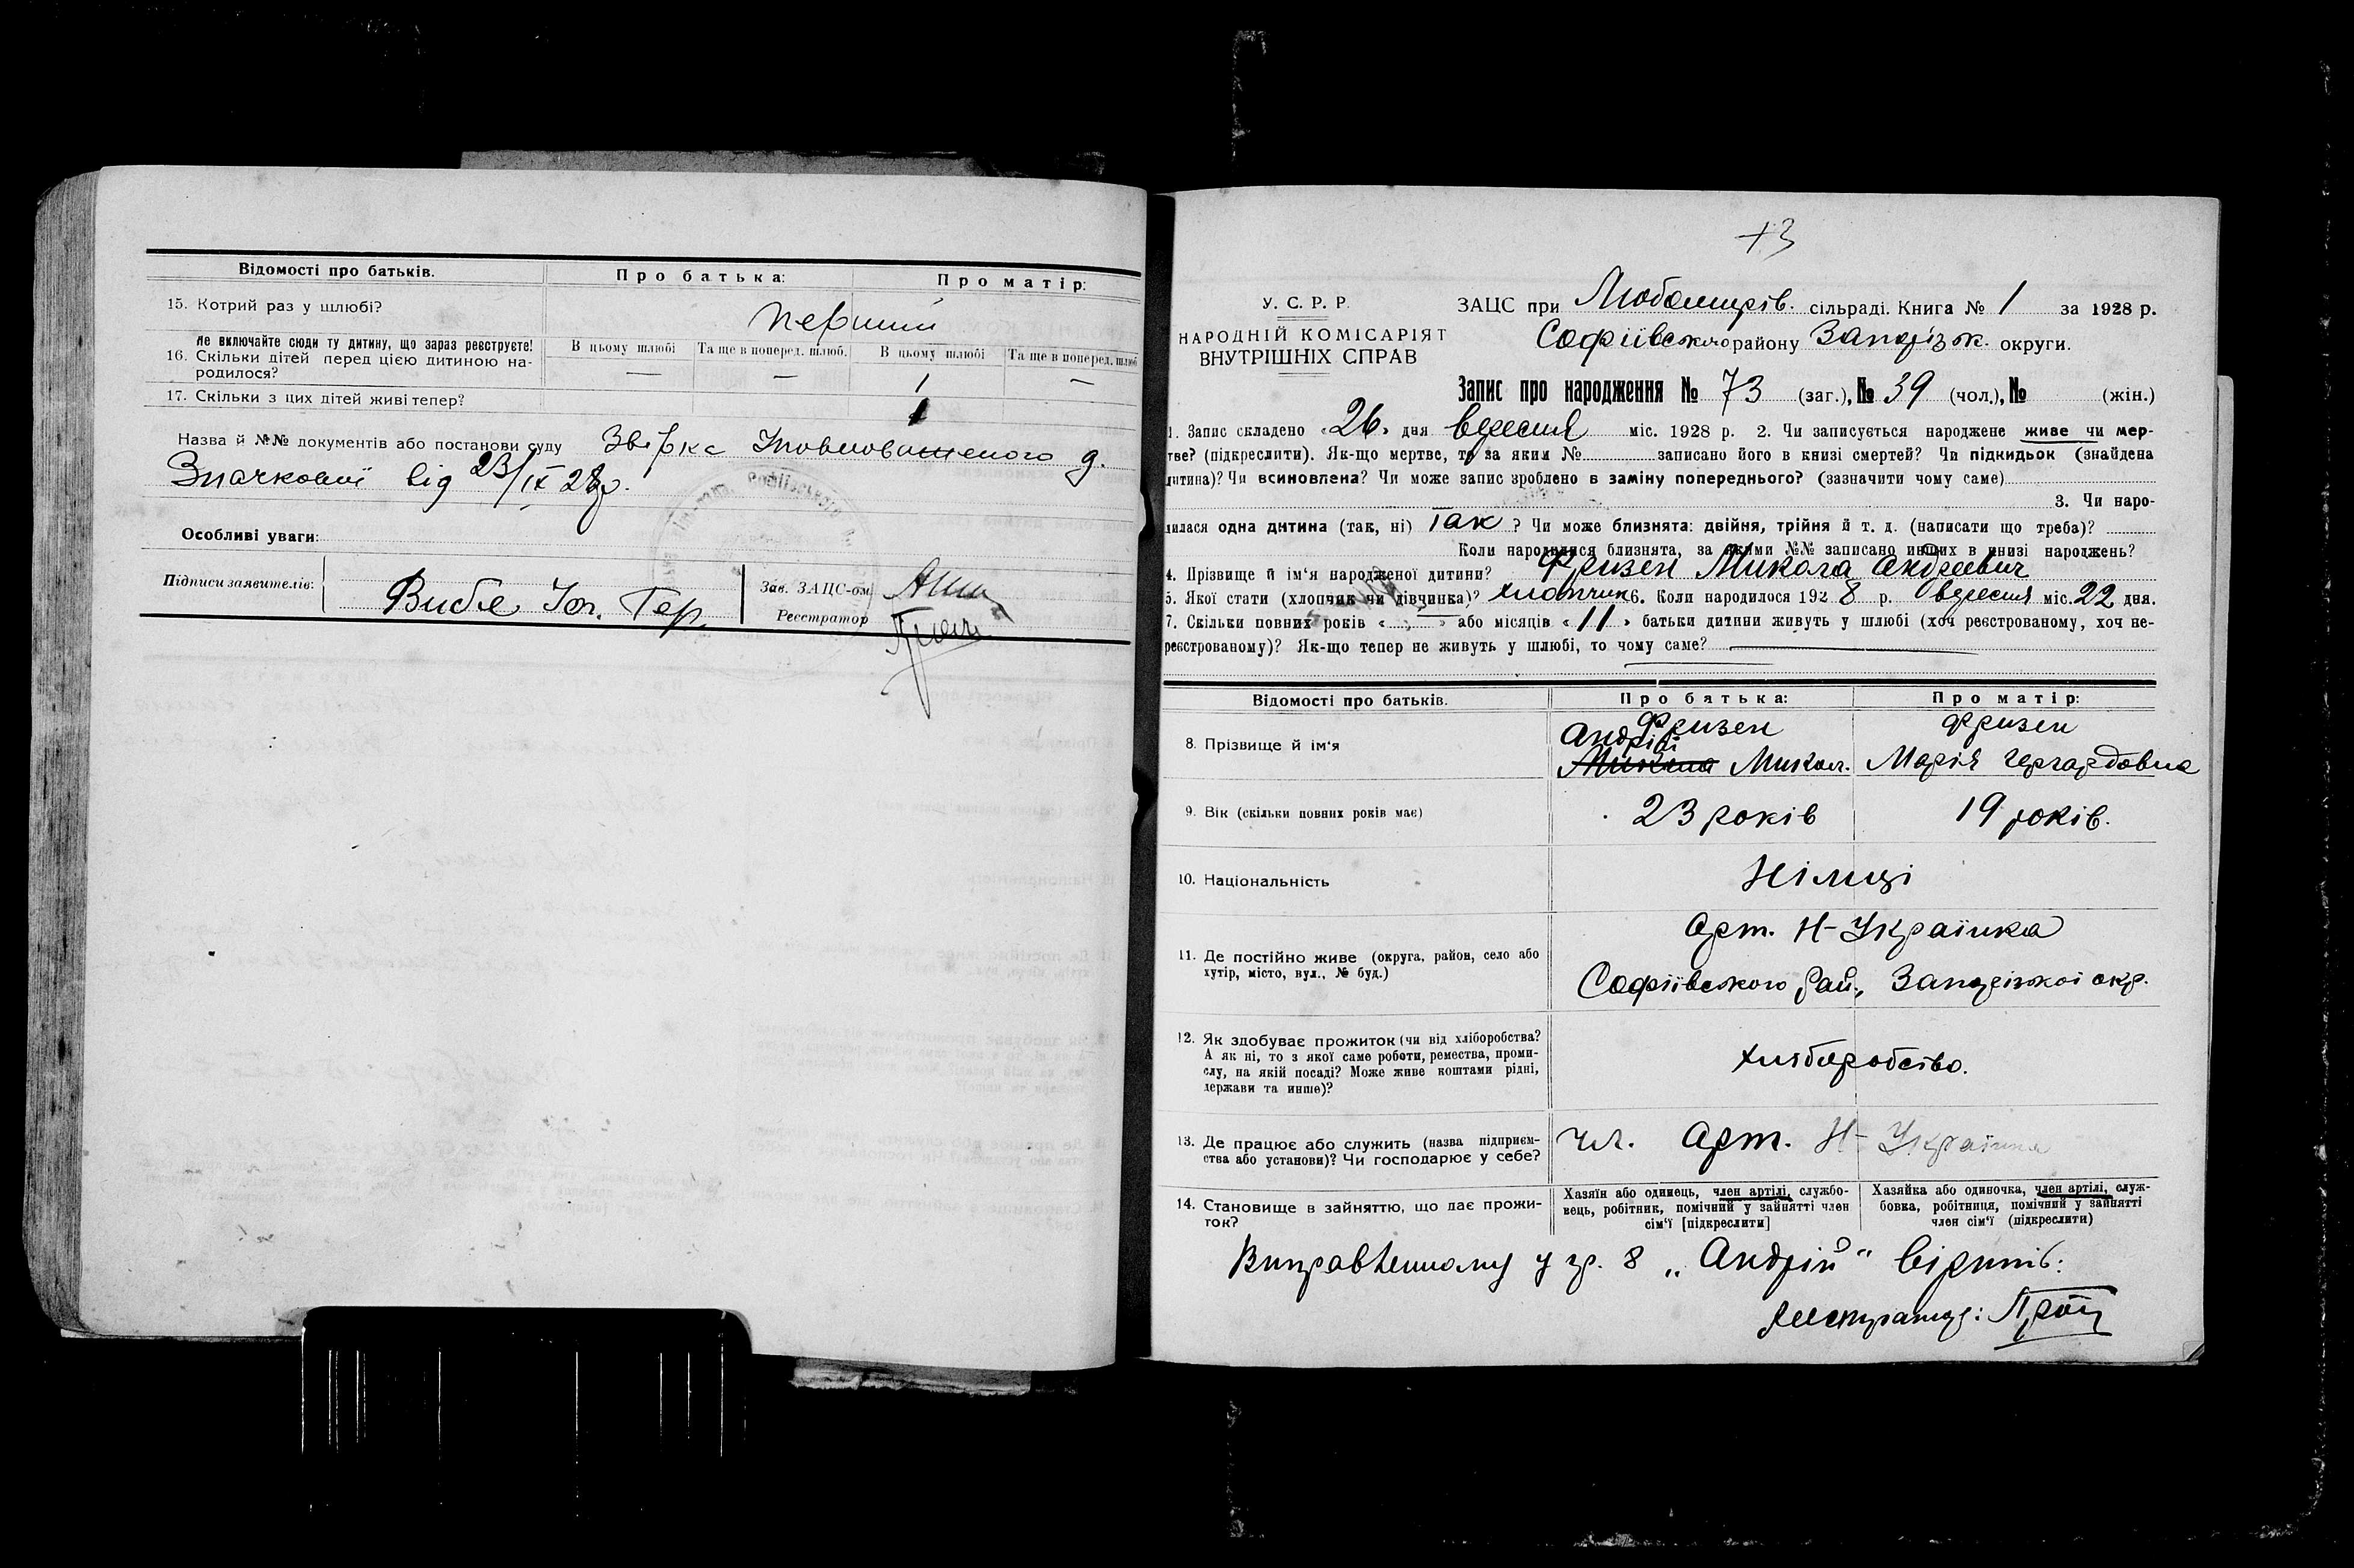 Відомості про батьків. Про батька: Про матір:
15. Котрий раз у шлюбі? перший
Не включайте сюди ту дитину, що зараз реєструєте! В цьому шлюбі Та ще в поперед. шлюб. В цьому шлюбі Та ще в поперед. шлюб
16. Скільки дітей перед цією дитиною на-
родилося? — — 1 —
17. Скільки з цих дітей живі тепер? 1
Назва й №№ документів або постанови суду Звірка Уповноваженого д.
від 23/IX 28р.
Особливі уваги:
Підписи заявителів: Вибе Гер. Зав. ЗАЦС-ом
Реєстратор
73
У. С. Р. Р.
НАРОДНІЙ КОМІСАРІЯТ
ВНУТРІШНІХ СПРАВ
ЗАЦС при Любомирів. сільраді. Книга № 1 за 1928 р.
Софіївського району Запорізьк. округи.
Запис про народження № 73 (заг.), № 39 (чол.), № (жін.)
1. Запис складено «26» дня вересня міс. 1928 р. 2. Чи записується народжене живе чи мер-
тве? (підкреслити). Як-що мертве, то за яким № записано його в книзі смертей? Чи підкидьок (знайдена
дитина)? Чи всиновлена? Чи може запис зроблено в заміну попереднього? (зазначити чому саме)
3. Чи наро-
дилася одна дитина (так, ні) Так ? Чи може близнята: двійня, трійня й т. д. (написати що треба)?
Коли народилися близнята, за якими №№ записано инших в книзі народжень?
4. Прізвище й ім'я народженої дитини? Фризен Микола Андреевич
5. Якої стати (хлопчик чи дівчинка)? хлопчик 6. Коли народилося 1928 р. вересня міс. 22 дня.
7. Скільки повних років « » або місяців «11» батьки дитини живуть у шлюбі (хоч реєстрованому, хоч не-
реєстрованому)? Як-що тепер не живуть у шлюбі, то чому саме?
Відомості про батьків. Про батька: Про матір:
8. Прізвище й ім'я Фризен Андрій Микола Микол. Фризен Марія Гергардовна
9. Вік (скільки повних років має) 23 років 19 років.
10. Національність Німці
11. Де постійно живе (округа, район, село або
хутір, місто, вул., № буд.)
Арт. Н-Українка
Софіївського рай., Запорізької окр.
12. Як здобуває прожиток (чи від хліборобства?
А як ні, то з якої саме роботи, ремества, проми-
слу, на якій посаді? Може живе коштами рідні,
держави та инше)?
хліборобство.
13. Де працює або служить (назва підприєм-
ства або установи)? Чи господарює у себе?
чл. Арт. Н-Українка
14. Становище в зайняттю, що дає прожи-
ток?
Хазяїн або одинець, член артілі, службо-
вець, робітник, помічний у зайнятті член
сім'ї [підкреслити]
Хазяйка або одиночка, член артілі, служ-
бовка, робітниця, помічний у зайнятті
член сім'ї (підкреслити)
Виправленному у гр. 8 „Андрій" вірить:
Реєстратор: